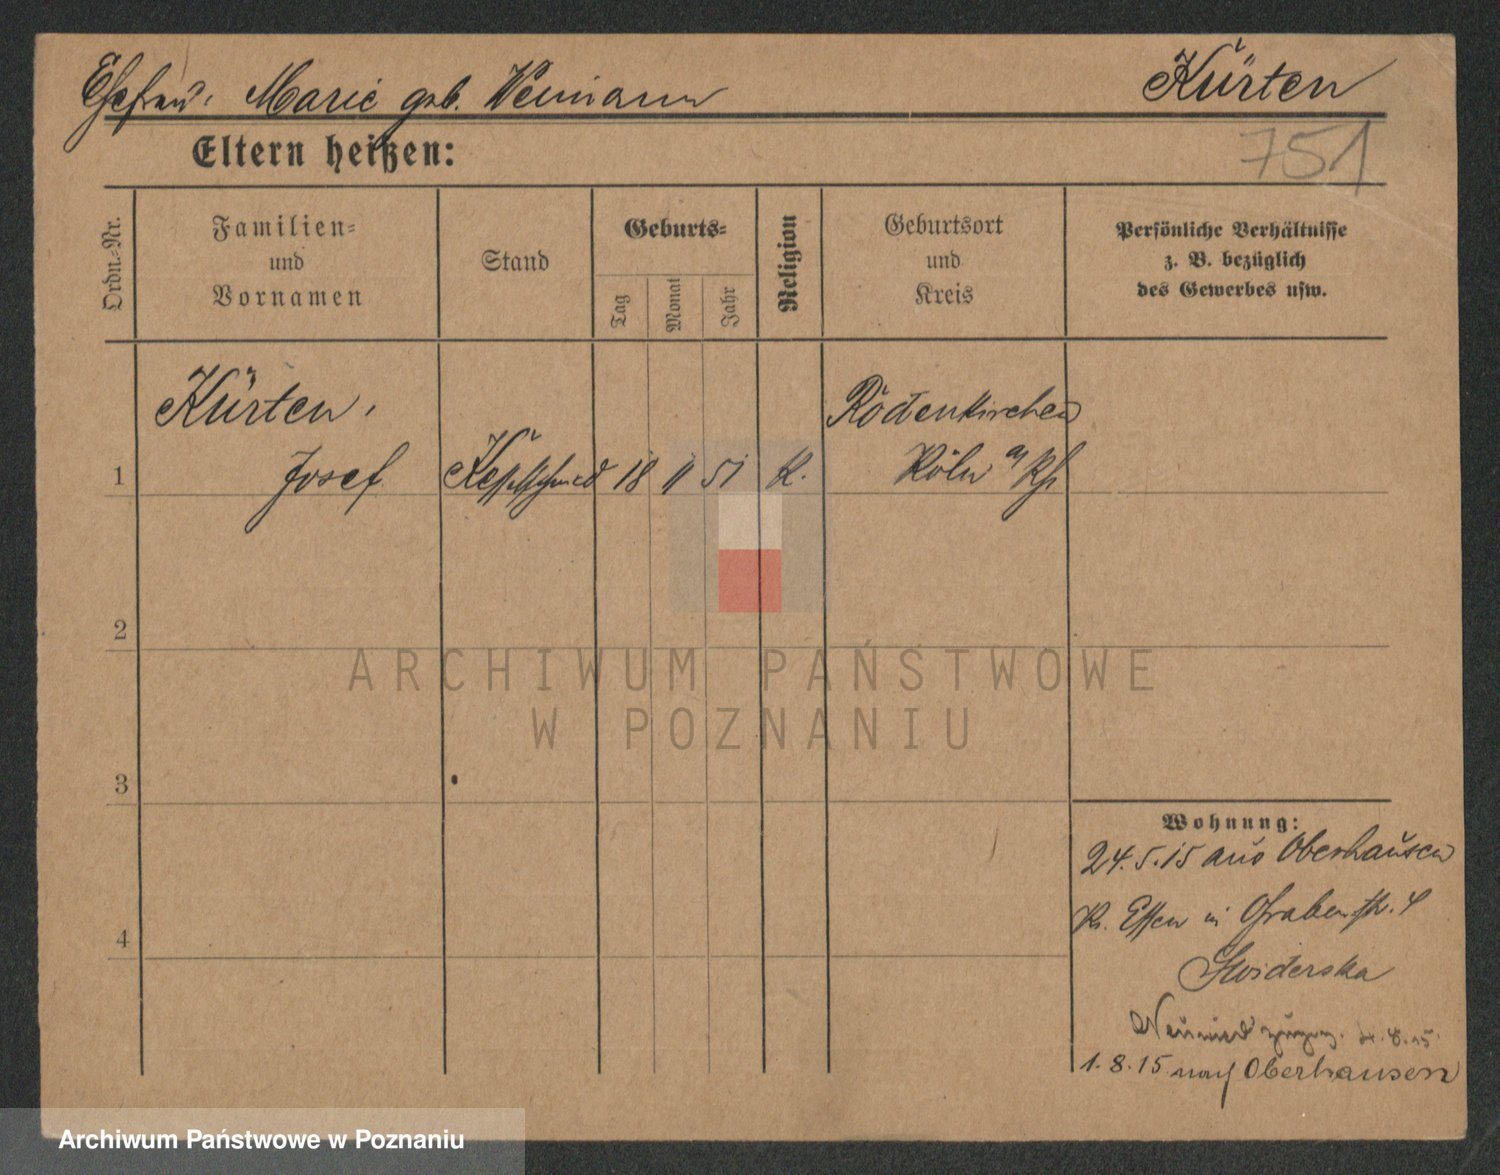 Ehefrau: Marie geb. Weimann
Kürten
Eltern heißen:
751
Ordn.-Nr.
Familien-
und
Vornamen
Stand
Geburts-
Tag
Monat
Jahr
Religion
Geburtsort
und
Kreis
Persönliche Verhältnisse
z. B. bezüglich
des Gewerbes usw.
Kürten,
Rodenkirchen
1 Josef Kesselschmied 18 11 51 K. Köln a/ Rh
2
3
4
Wohnung:
24.5.15 aus Oberhausen
Kr. Essen in Grabenstr. 4
Swiderska
Neuwied 4.8.15.
1.8.15 nach Oberhausen
ARCHIWUM PAŃSTWOWE
W POZNANIU
Archiwum Państwowe w Poznaniu